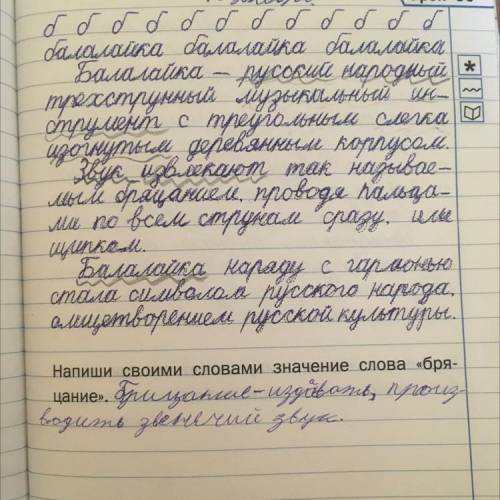 б б б б б б б б б б б б
балалайка балалайка балалайка
Балалайка – русский народный
трехструнный музыкальный ин-
струмент с треугольным слегка
изогнутым деревянным корпусом.
Звук извлекают так называе-
мым бряцанием, проводя пальца-
ми по всем струнам сразу, или
щипком.
Балалайка наряду с гармонью
стала символом русского народа,
олицетворением русской культуры.
Напиши своими словами значение слова «бря-
цание». Брицание-издавать, произ
водить звенячий звук.